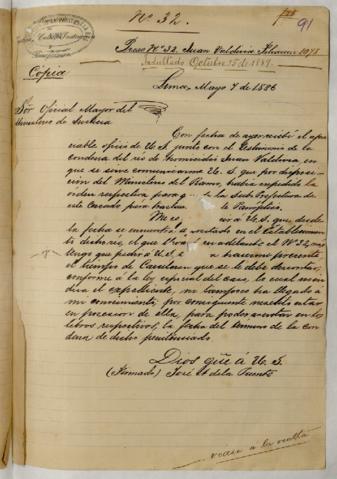 Nº 32.
91
Preso Nº 32. Juan Valdivia
Indultado Octubre 15 de 1889.
Copia
Lima, Mayo 7 de 1886
Sor Oficial Mayor del
Ministerio de Justicia
Con fecha de ayer recibí el apre
ciable oficio de U.S. junto con el testimonio de la
condena del reo de homicidio Juan Valdivia, en
que se sirve comunicarme U.S. que por disposi
ción del Ministerio del Ramo, había expedido la
orden respectiva para q la Sub Prefectura de
este Cercado
á U.S. que desde
la fecha se encuentra en el Establecimien
to dicho reo, el que en adelante el Nº 32, mas
tengo que pedir á U.S. hacerme presente
el tiempo de Carceleria que se le debe descontar,
conforme á la ley
el expediente, no tampoco ha llegado á
mi conocimiento, por consiguiente necesito estar
en posecion de ella, para poder anotar en los
libros respectivos, la fecha del termino de la con
dena de dicho penitenciado
Dios gue á U.S.
(Firmado) José de la Puente